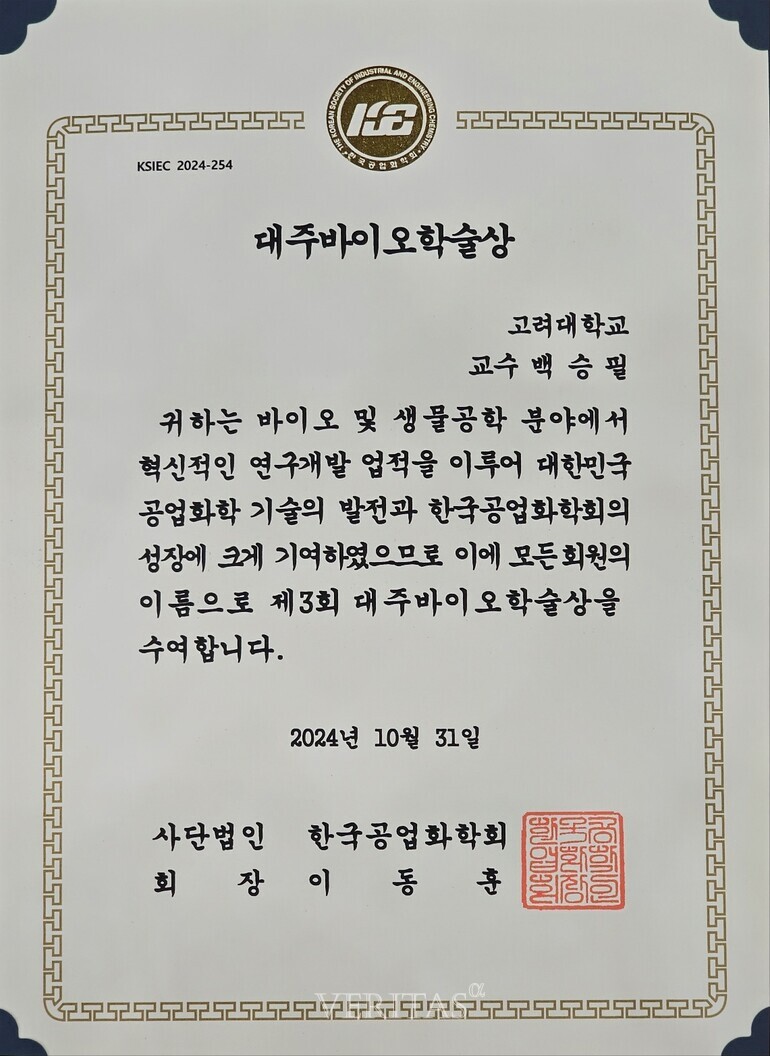 THE KOREAN SOCIETY OF INDUSTRIAL AND ENGINEERING CHEMISTRY
한국공업화학회
KSIEC 2024-254
대주바이오학술상
고려대학교
교수 백 승 필
귀하는 바이오 및 생물공학 분야에서
혁신적인 연구개발 업적을 이루어 대한민국
공업화학 기술의 발전과 한국공업화학회의
성장에 크게 기여하였으므로 이에 모든회원의
이름으로 제3회 대주바이오학술상을
수여합니다.
2024년 10월 31일
사단법인 한국공업화학회
회 장 이 동 훈
VERITAS α